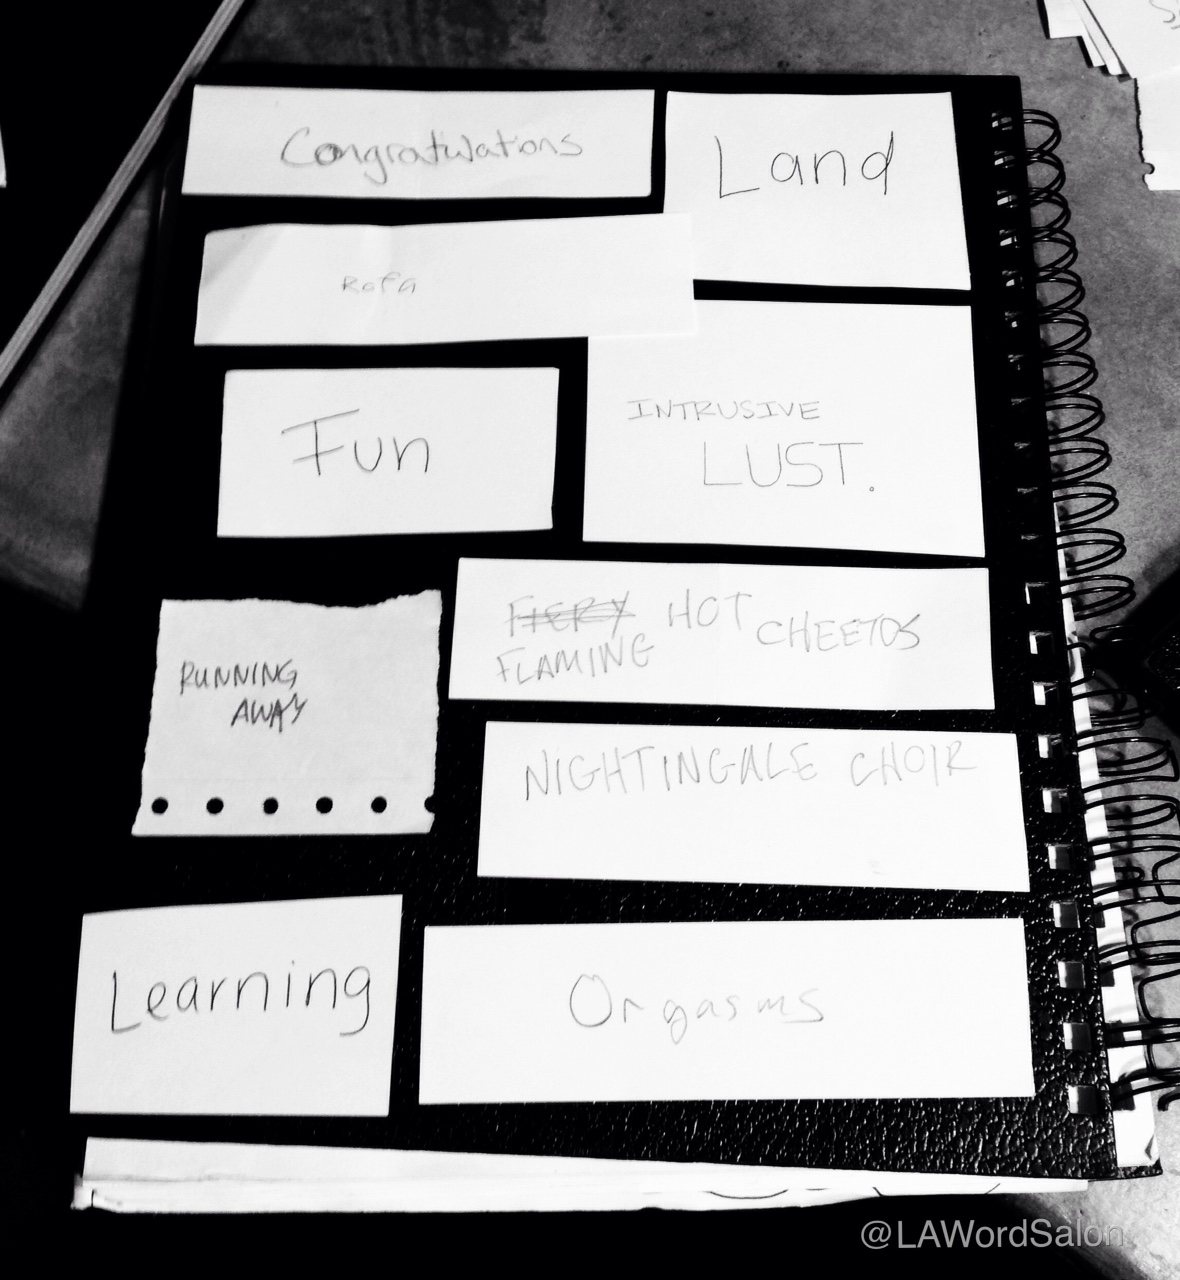 Congratulations
Land
Rofa
Fun
INTRUSIVE
LUST.
FIERY HOT CHEETOS
FLAMING
RUNNING
AWAY
NIGHTINGALE CHOIR
Learning
Orgasms
@LAWordSalon